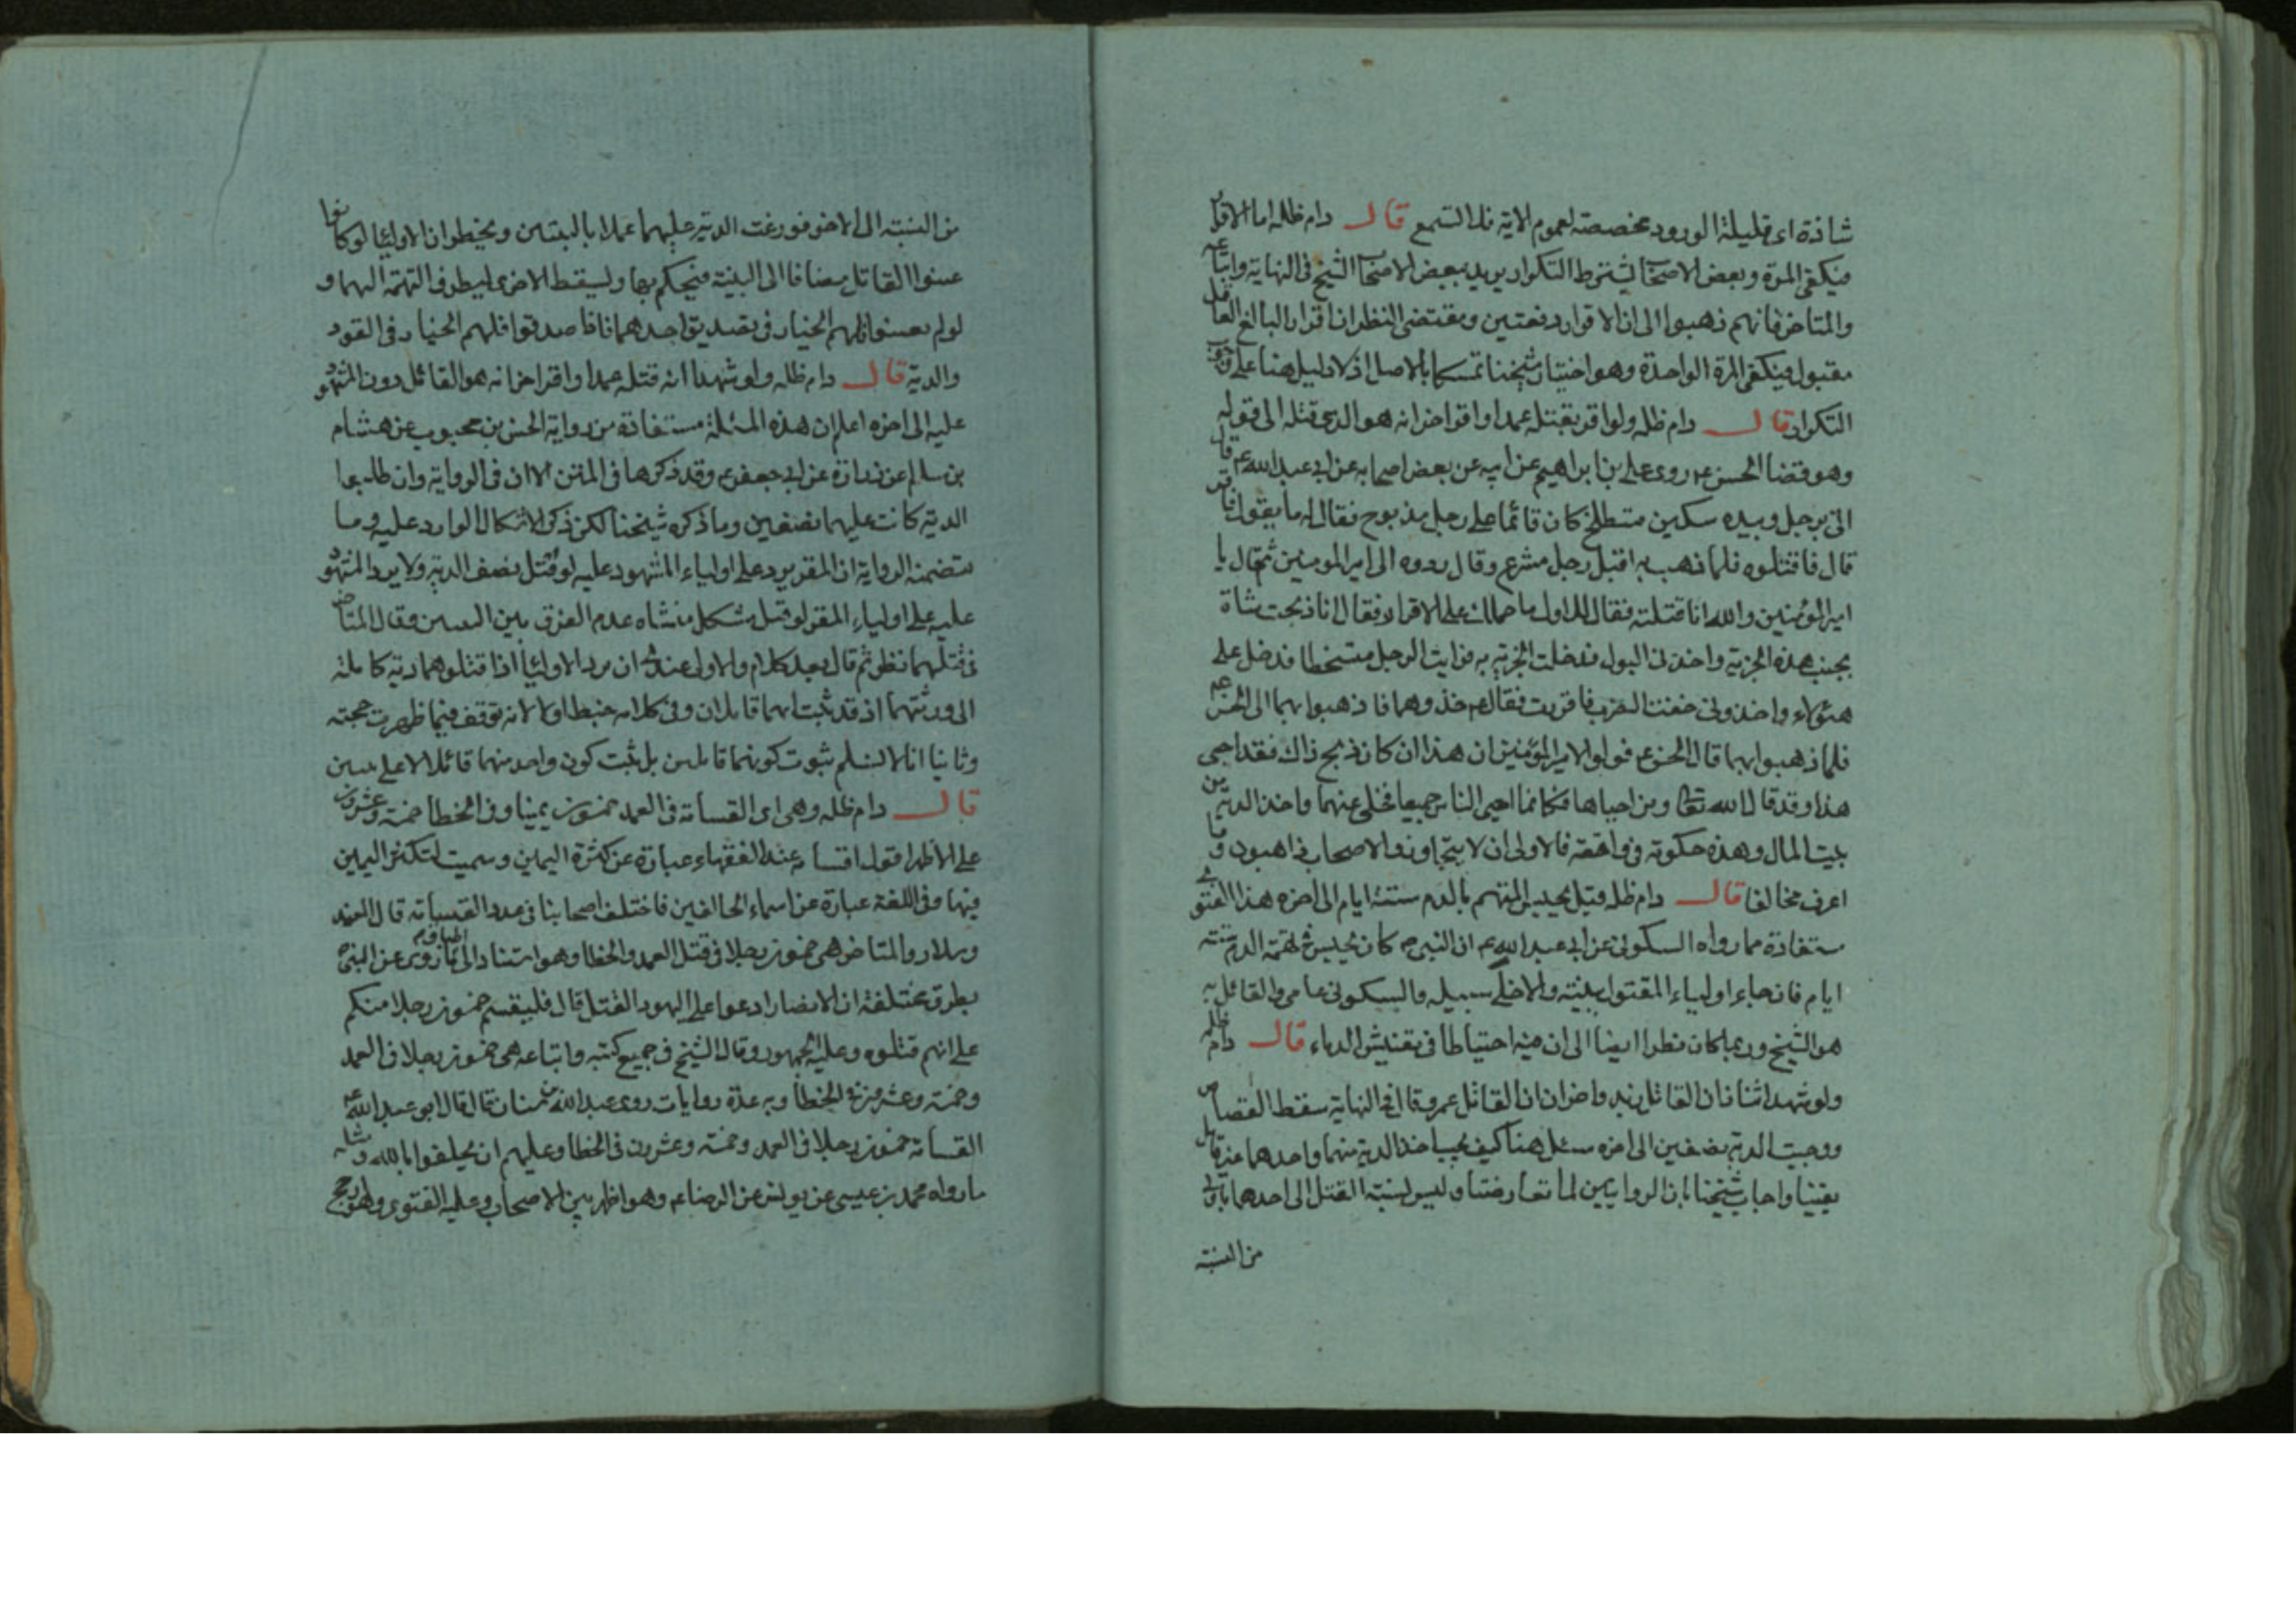 شاذة اى قليلة الورود مخصصة لعموم الاية نادا التسمع قال دام ظله اما الاقرار
فيكفى المرة وبعض الاصحاب يشترط التكرار يريد ببعض الاصحاب الشيخ فى النهاية واتباعه
والمتاخر فانهم ذهبوا الى ان الاقرار دفعتين ومقتضى النظر ان اقرار البالغ العاقل
مقبول فيكفى المرة الواحدة وهو اختيار شيخنا تمسكا بالاصل اذ لا دليل هنا على وجوب
التكرار قال دام ظله ولو اقر بقتله عمدا واقر اخر انه هو الذى قتله الى قوله
وهو قضا الحسن ع روى على بن ابراهيم عن ابيه عن بعض اصحابه عن ابى عبد الله ع قال
اتى برجل وبيده سكين متطلخ كان قائما على رجل مذبوح فقال له ما يقول فاقر
قال فاقتلوه فلما ذهب به اقبل رجل مشرع وقال ردوه الى امير المومنين ثم قال يا
امير المؤمنين والله انا قتلته فقال للاول ما حملك على الاقرار فقال انا ذبحت شاة
بجنب هذه الخربة واخذنى البول فدخلت الخربة فرايت الرجل متشحطا فدخل على
هؤلاء واخذونى خفت الضرب فاقررت فقال ع خذوهما فاذهبوا بهما الى الحسن ع
فلما ذهبوا بهما قال الحسن ع قولوا لامير المؤمنين ان هذا ان كان ذبح ذاك فقد احيى
هذا وقد قال الله تعالى ومن احياها فكانما احيى الناس جميعا فخلى عنهما واخذ الدية من
بيت المال وهذه حكومة فى واقعة فالاولى ان لا يتجاوز والاصحاب ذاهبون وما
اعرف مخالفا قال دام ظله قيل يحبس المتهم بالدم ستة ايام الى اخره هذا الفتوى
مستفادة مما رواه السكونى عن ابى عبد الله ع ان النبى ص كان يحبس فى تهمة الدم ستة
ايام فان جاء اولياء المقتول ببينة والا خلى سبيله والسكونى عامى والقائل به
هو الشيخ وربما كان نظرا ايضا الى ان فيه احتياطا فى تفتيش الدماء قال دام ظله
ولو شهد اثنان ان القاتل زيد واخران ان القاتل عمرو قال فى النهاية سقط القصاص
ووجبت الدية نصفين الى اخره سئل هنا كيف يجب اخذ الدية منهما واحدهما غير قاتل
يقينا واجاب شيخنا بان الروايتين لما تعارضتا وليس لنسبة القتل الى احدهما باولى
من النسبة
من النسبة الى الاخر فوزعت الدية عليهما عملا بالبينتين ويخطر ان الاولياء لو كانوا
عينوا القاتل مضافا الى البينة فيحكم بها ويسقط الاخرى لتطرف التهمة اليها و
لو لم يعينوا فلهم الخيار فى تصديق احدهما فاذا صدقوا فلهم الخيار فى القود
والدية قال دام ظله ولو شهدا انه قتله عمدا واقر اخر انه هو القاتل دون المشهود
عليه الى اخره اعلم ان هذه المسئلة مستفادة من رواية الحسن بن محبوب عن هشام
بن سالم عن زرارة عن ابى جعفر ع وقد ذكرها فى المتن الا ان فى الرواية وان طلبوا
الدية كانت عليهما نصفين وما ذكره شيخنا لكن ذكر الاشكال الوارد عليه وما
يتضمنه الرواية ان المقر يرد على اولياء المشهود عليه لو قتل نصف الدية ولا يرد المشهود
عليه على اولياء المقر لو قتل مشكل منشاه عدم الفرق بين وقال المتاخر
فى قتلهما نظر ثم قال بعد كلام والاولى عندى ان يرد الاولياء اذا قتلوهما دية كاملة
الى ورثتهما اذ قد ثبت انهما قاتلان وفى كلامه خبط اولا لانه توقف فيما ظهرت حجته
وثانيا انا لا نسلم ثبوت كونهما قاتلين بل ثبت كون واحد منهما قاتلا لا على
قال دام ظله وهى اى القسامة فى العمد خمسون يمينا وفى الخطا خمسة وعشرون
على الاظهر اقول القسامة عند الفقهاء عبارة عن كثرة اليمين وسميت لتكثر اليمين
فيها وفى اللغة عبارة عن اسماء الحالفين فاختلف اصحابنا فى عدد القسامة قال المفيد
وسلار والمتاخر هى خمسون رجلا فى قتل العمد والخطا وهو استنادا الى ما روى عن النبى ص
بطرق مختلفة ان الانصار ادعوا على اليهود القتل قال فليقسم خمسون رجلا منكم
على انهم قتلوه وعليه الجمهور وقال الشيخ فى جميع كتبه واتباعه هى خمسون رجلا فى العمد
وخمسة وعشرون فى الخطا وبه عدة روايات روى عبد الله بن سنان قال قال ابو عبد الله ع
القسامة خمسون رجلا فى العمد وخمسة وعشرون فى الخطا وعليهم ان يحلفوا بالله ومثله
ما رواه محمد بن عيسى عن يونس عن الرضا ع وهو اظهر بين الاصحاب وعليه الفتوى